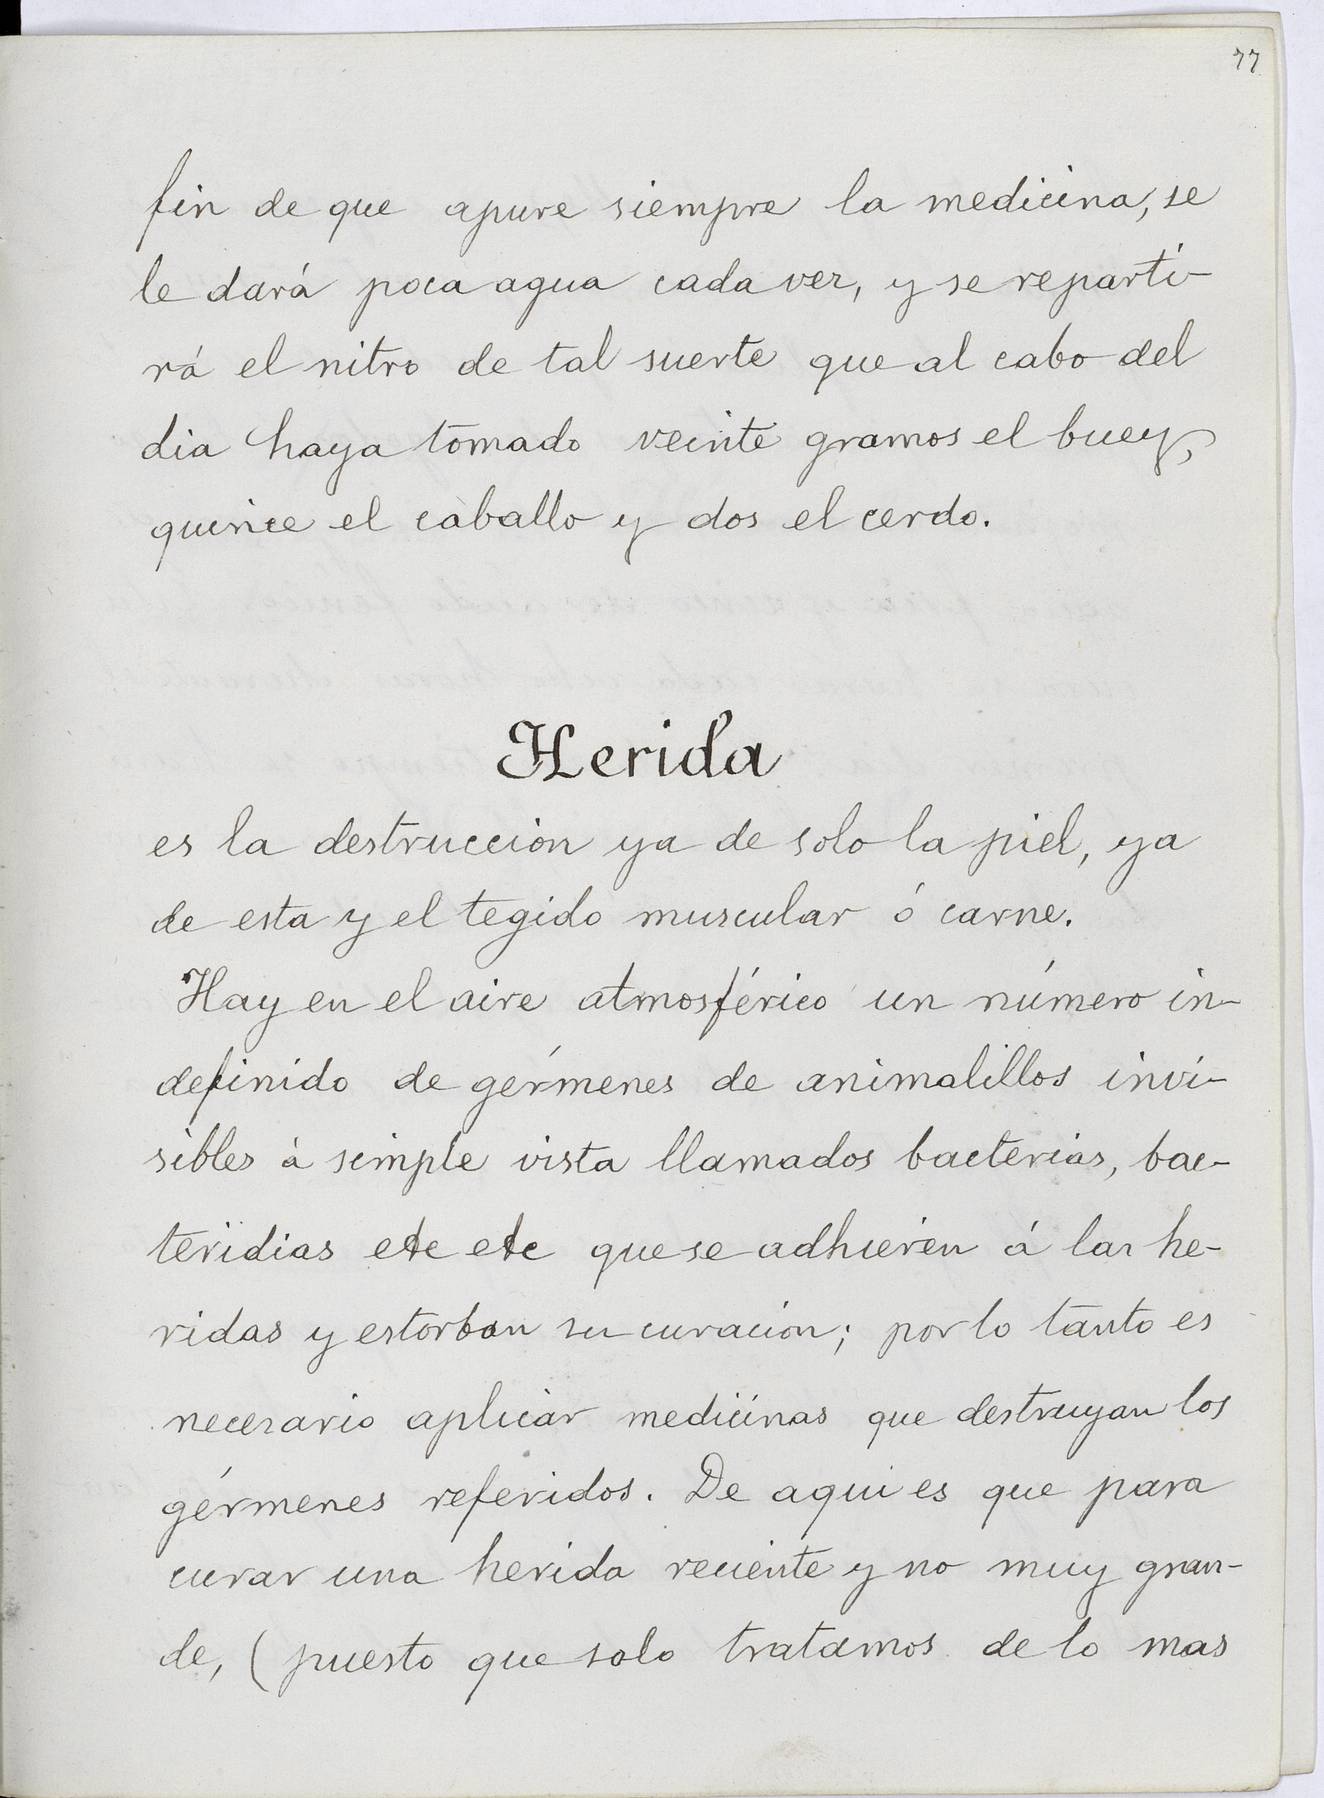 77
fin de que apure siempre la medicina, se
le dará poca agua cada vez, y se reparti-
rá el nitro de tal suerte que al cabo del
dia haya tomado veinte gramos el buey,
quince el caballo y dos el cerdo.
Herida
es la destruccion ya de solo la piel, ya
de esta y el tegido muscular ó carne.
Hay en el aire atmosférico un número in-
definido de gérmenes de animalillos invi-
sibles á simple vista llamados bacterias, bac-
teridias etc etc que se adhieren á las he-
ridas y estorban su curacion; por lo tanto es
necesario aplicar medicinas que destruyan los
gérmenes referidos. De aqui es que para
curar una herida reciente y no muy gran-
de, (puesto que solo tratamos de lo mas